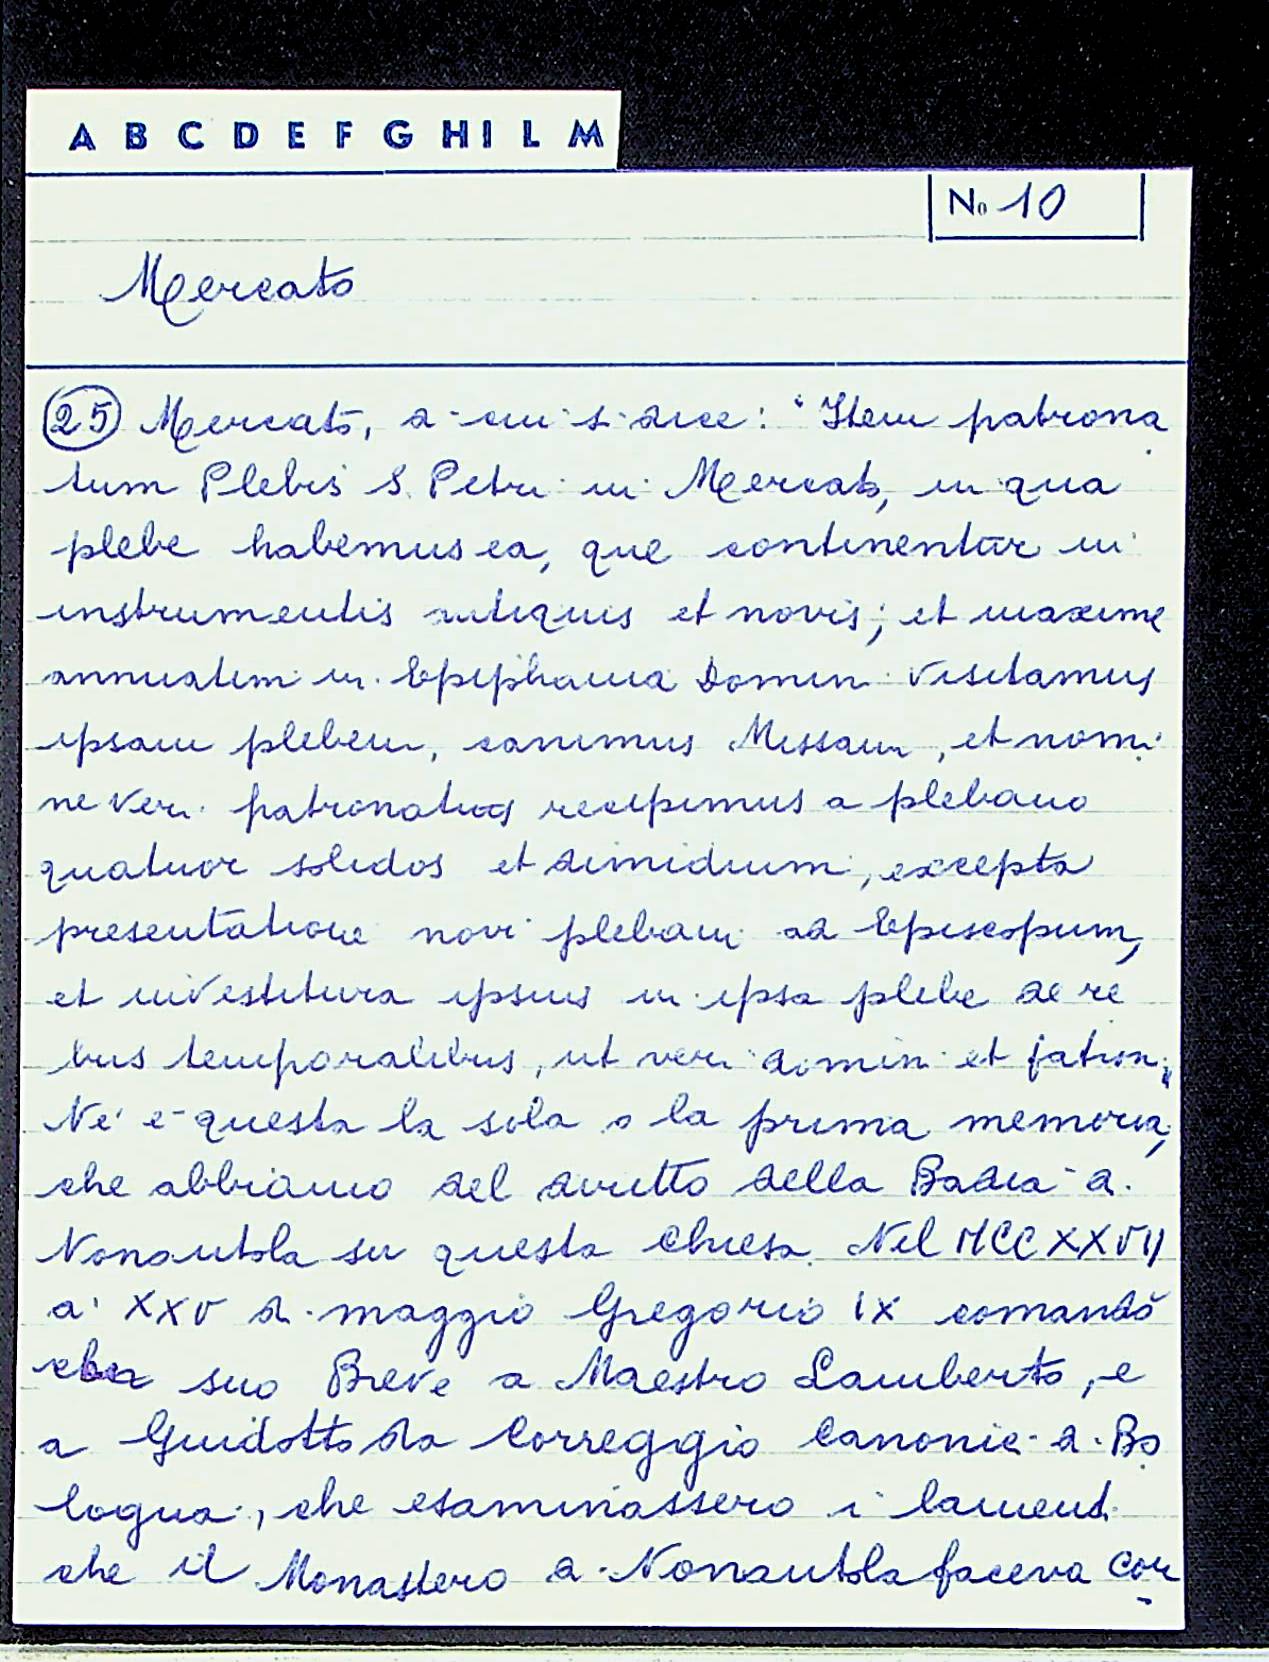 A B C D E F G H I L M
No 10
Mercato
25 Mercato, di cui si dice: "Item patrona
tum Plebis S. Petri in Mercato, in qua
plebe habemus ea, que continentur in
instrumentis antiquis et novis; et maxime
annuatim in Epiphania Domini visitamus
ipsam plebem, canimus Missam, et nomi
ne veri patronatus recipimus a plebano
quatuor solidos et dimidium, excepta
presentatione novi plebani ad Episcopum,
et investitura ipsius in ipsa plebe de re
bus temporalibus, ut veri domini et patroni"
Nè è questa la sola o la prima memoria,
che abbiamo del diritto della Badia di
Nonantola su questa Chiesa. Nel MCCXXVII
a' XXV di maggio Gregorio IX comandò
suo Breve a Maestro Lamberto, e
a Guidotto da Correggio Canonici di Bo
logna, che esaminassero i lamenti
che il Monastero di Nonantola faceva con